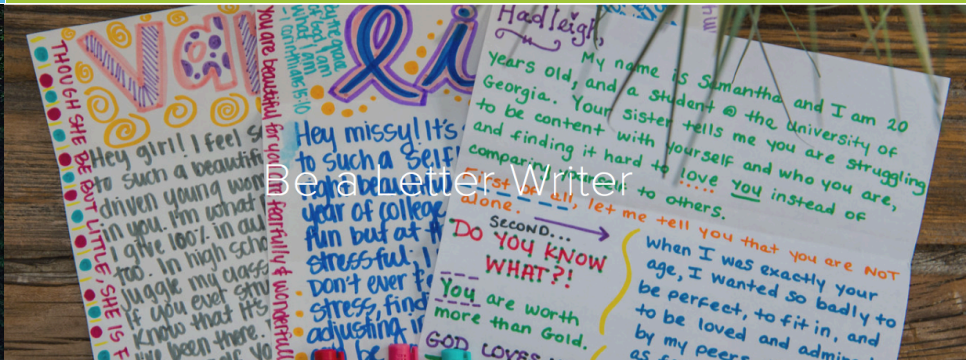 Be a Letter Writer
Val
THOUGH SHE BE BUT LITTLE, SHE IS F
Hey girl! I feel s
to such a beautif
driven young wom
in you. I'm what
I give 100% in au
too. In high scho
juggle my class
if you ever stru
know that it's
You are beautiful for you are fearfully & wonderfull
God, I am
what I am
-1 corinthians 15:10
li
Hey missy! It's
to such a self
year of college
fun but at th
stressful. I
Don't ever fe
stress, find
adjusting in
Hadleigh,
My name is Samantha and I am 20
years old, and a student @ the university of
Georgia. Your sister tells me you are struggling
to be content with yourself and who you are,
and finding it hard to love you instead of
comparing to others.
First of all, let me tell you that you are NOT
alone.
SECOND...
DO YOU KNOW
WHAT?!
You are worth
more than Gold.
GOD LOVES
When I was exactly your
age, I wanted so badly to
be perfect, to fit in, and
to be loved and admir
by my peers